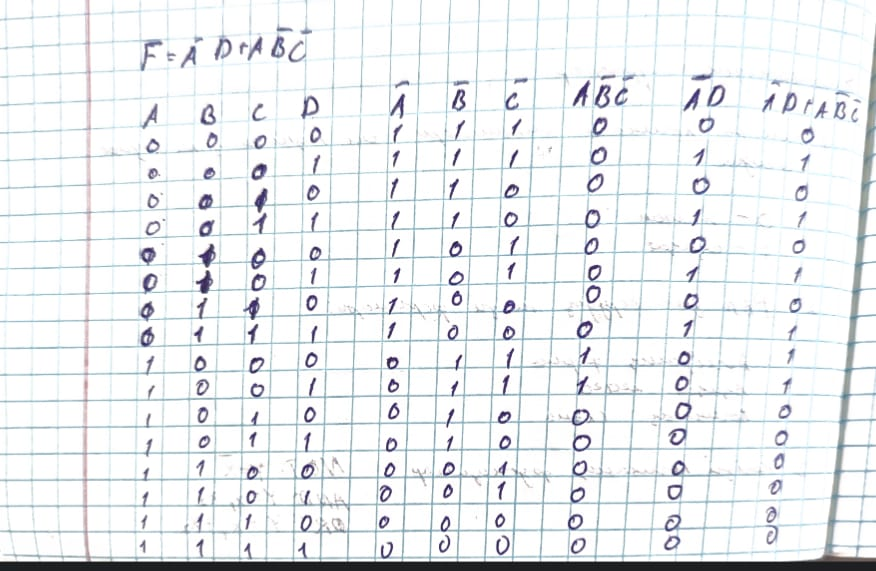 F̄ = Ā D + A B̄ C̄
A B C D Ā B̄ C̄ A B̄ C̄ Ā D Ā D + A B̄ C̄
0 0 0 0 1 1 1 0 0 0
0 0 0 1 1 1 1 0 1 1
0 0 1 0 1 1 0 0 0 0
0 0 1 1 1 1 0 0 1 1
0 1 0 0 1 0 1 0 0 0
0 1 0 1 1 0 1 0 1 1
0 1 1 0 1 0 0 0 0 0
0 1 1 1 1 0 0 0 1 1
1 0 0 0 0 1 1 1 0 1
1 0 0 1 0 1 1 1 0 1
1 0 1 0 0 1 0 0 0 0
1 0 1 1 0 1 0 0 0 0
1 1 0 0 0 0 1 0 0 0
1 1 0 1 0 0 1 0 0 0
1 1 1 0 0 0 0 0 0 0
1 1 1 1 0 0 0 0 0 0